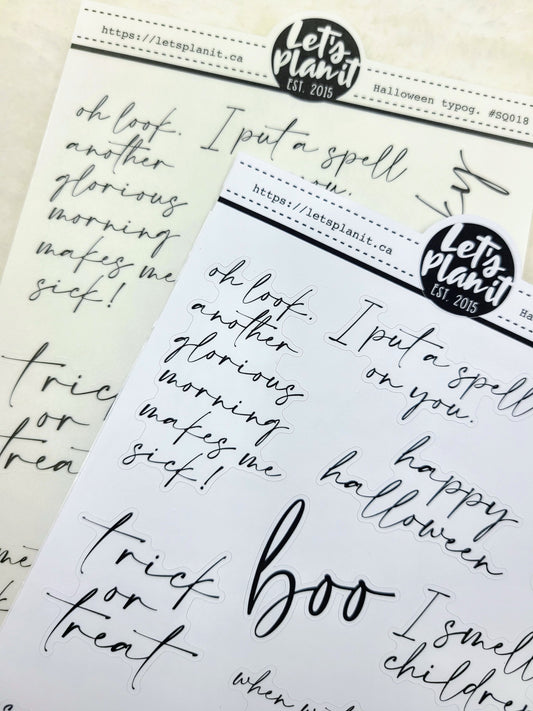 https://letsplanit.ca
Let's
plan it
EST. 2015
Halloween typog. #SQ018
oh look.
another
glorious
morning
makes me
sick!
I put a spell
you.
tric
or
trea
me
https://letsplanit.ca
Let's
plan it
EST. 2015
Ha
oh look.
another
glorious
morning
makes me
sick!
I put a spell
on you.
happy
halloween
trick
or
treat
boo
I smell
children
when